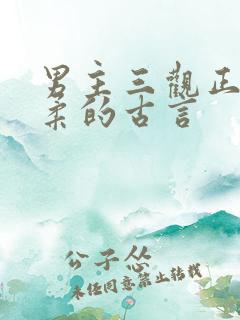 男主三觀正
柔的古言
公子怂
未经同意禁止转载